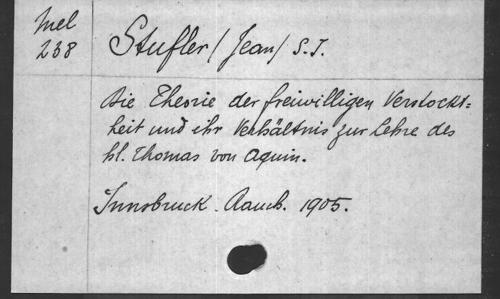 Mel
238
Stufler / Jean / S.J.
Die Theorie der freiwilligen Verstockt=
heit und ihr Verhältnis zur Lehre des
hl. Thomas von Aquin.
Innsbruck. Rauch. 1905.